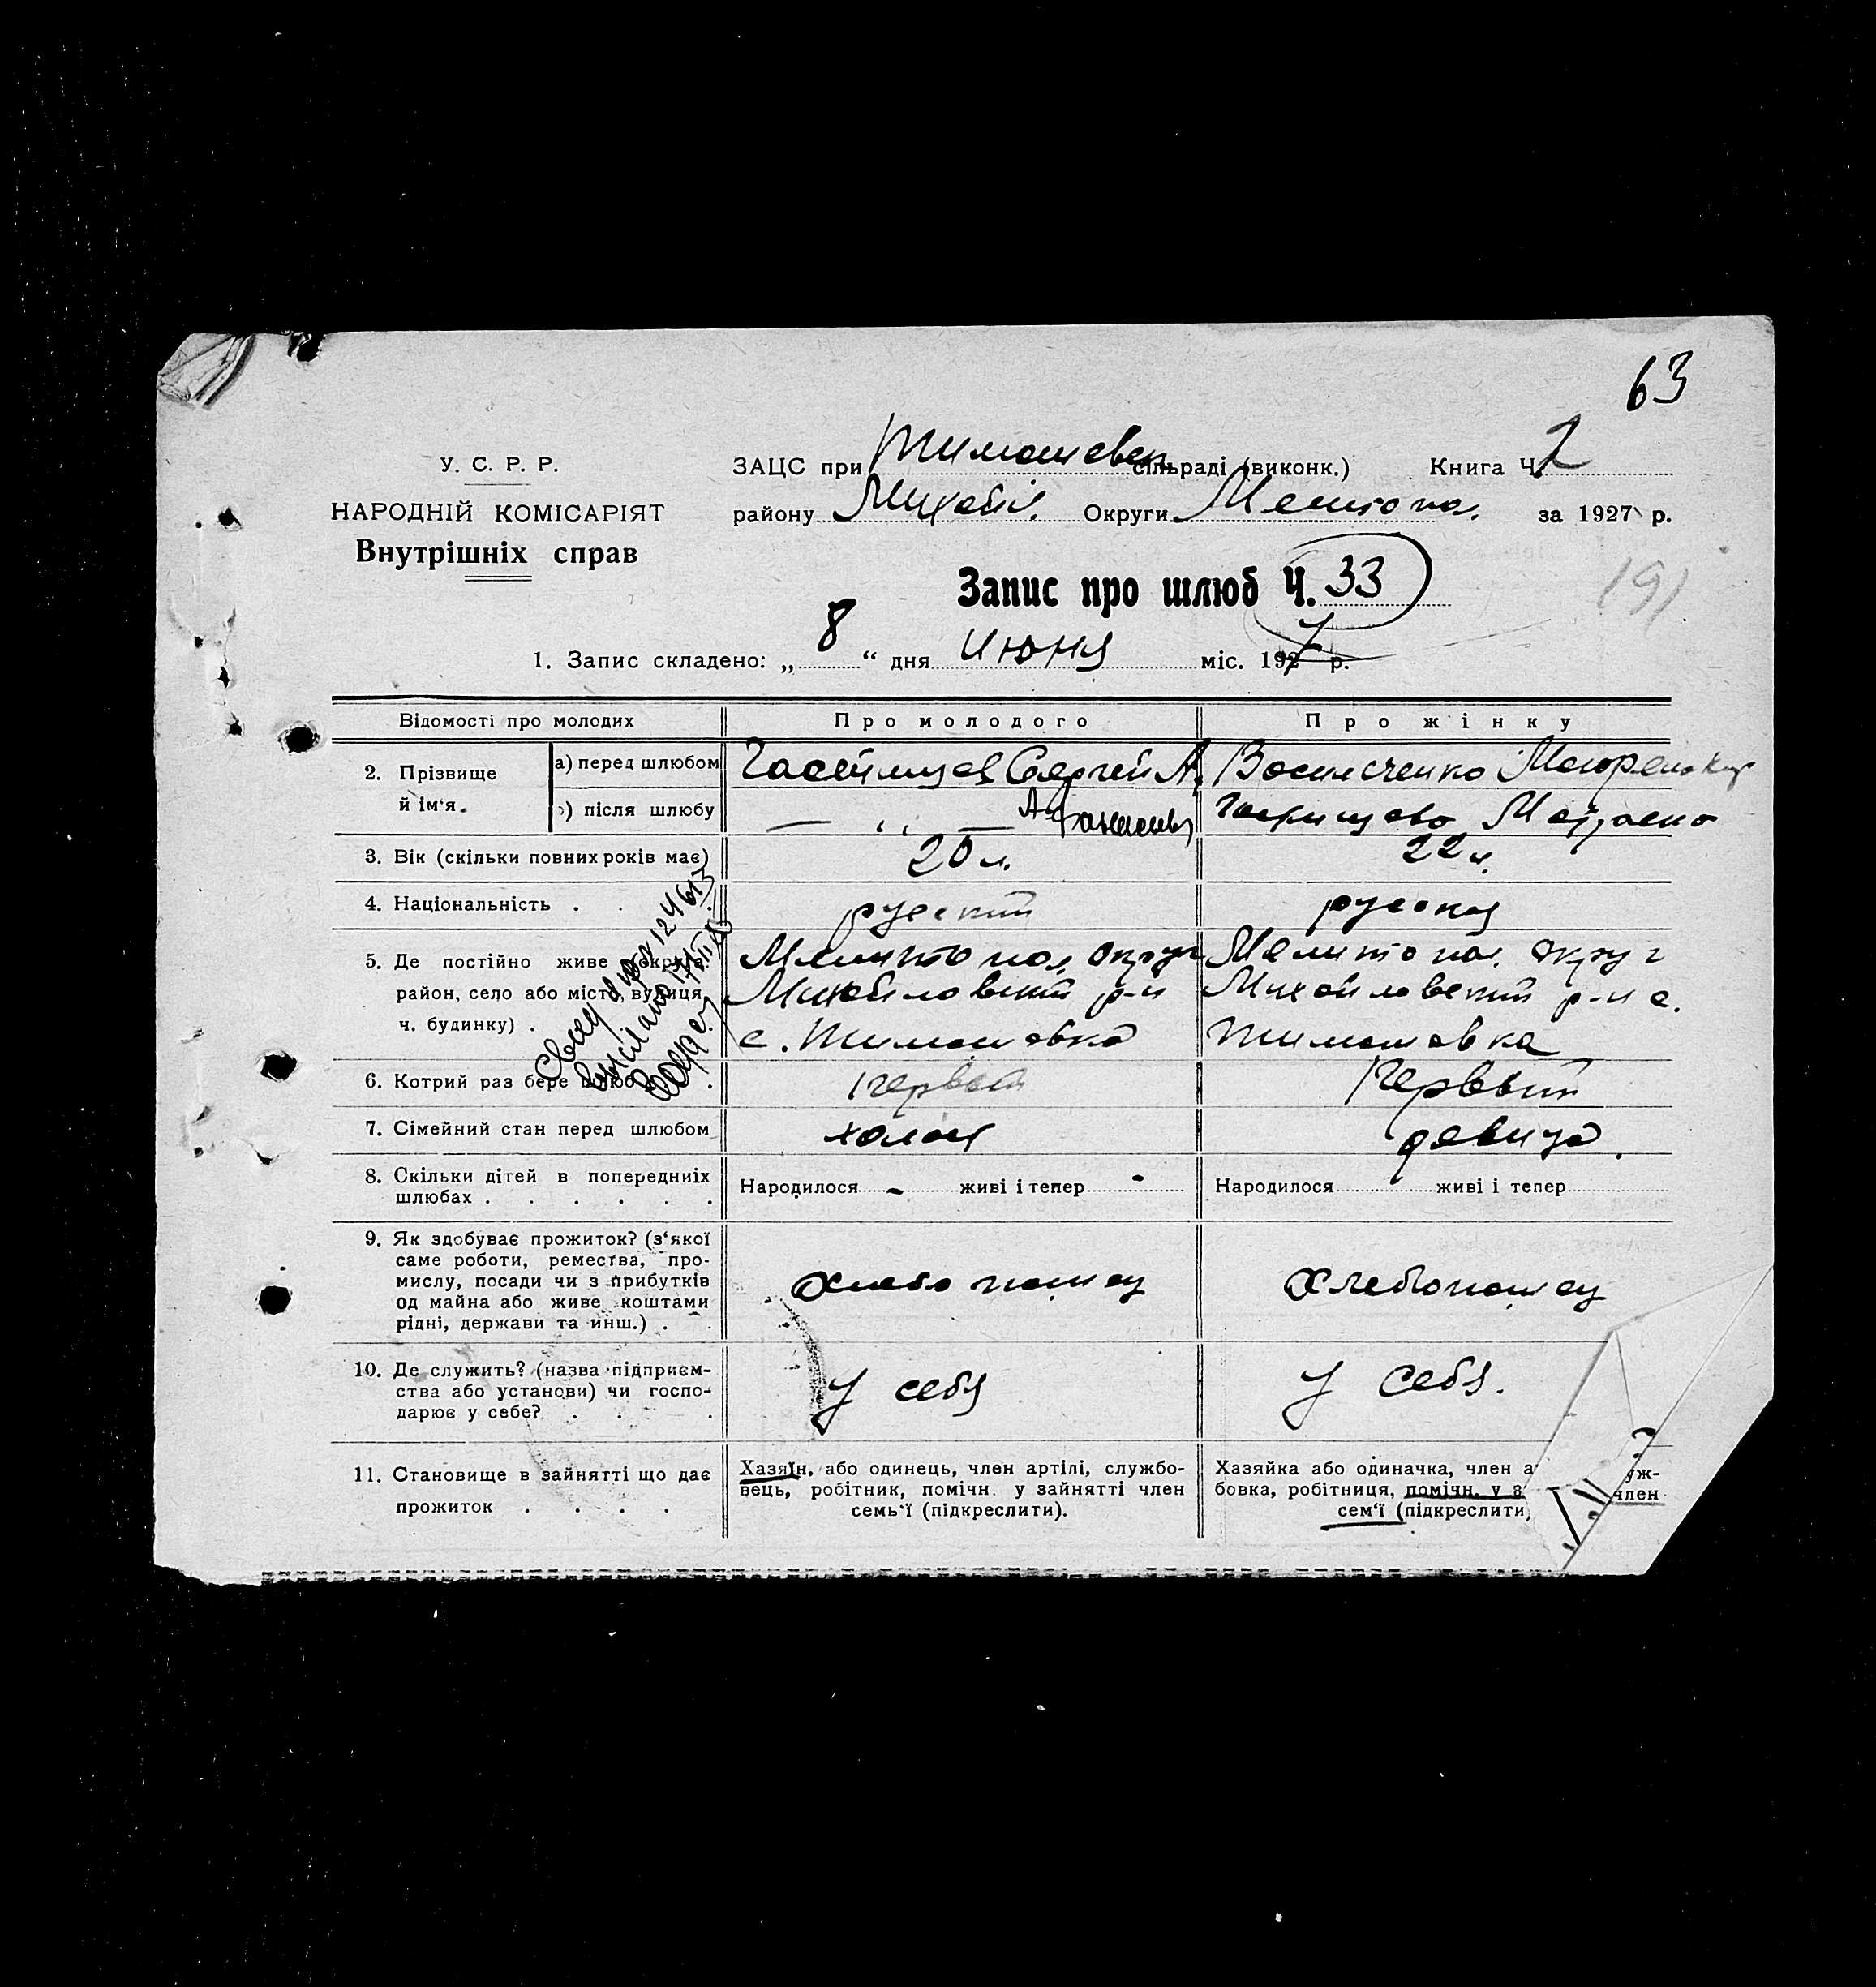 63
У. С. Р. Р.
НАРОДНІЙ КОМІСАРІЯТ
Внутрішніх справ
ЗАЦС при Тимошевск сільраді (виконк.) Книга Ч. 2
району Михайл. Округи Мелитопол. за 1927 р.
Запис про шлюб Ч. 33
191
1. Запис складено: „ 8 “ дня июня міс. 1927 р.
Відомості про молодих Про молодого Про жінку
2. Прізвище й ім'я.
а) перед шлюбом Сергей А. Василченко
б) після шлюбу — „ — Афанасьев
3. Вік (скільки повних років має) 20 л. 22 л.
4. Національність . русский русская
5. Де постійно живе (округа, район, село або місто, вулиця ч. будинку) .
Мелитопол. округ Мелитопол. округ
Михайловский р-н Михайловский р-н с.
с. Тимошовка Тимошовка
124613
6. Котрий раз бере шлюб . первый Первый
7. Сімейний стан перед шлюбом холост девица.
8. Скільки дітей в попередніх шлюбах . . . . . .
Народилося - живі і тепер - Народилося живі і тепер
9. Як здобуває прожиток? (з'якої
саме роботи, ремества, про-
мислу, посади чи з прибутків
од майна або живе коштами
рідні, держави та инш.) . .
хлебопашец Хлебопашец
10. Де служить? (назва підприєм-
ства або установи) чи госпо-
дарює у себе? . . .
У себя У себя.
11. Становище в зайнятті що дає
прожиток . . . .
Хазяїн, або одинець, член артілі, службо-
вець, робітник, помічн. у зайнятті член
семь'ї (підкреслити).
Хазяйка або одиначка, член а уж-
бовка, робітниця, помічн. у з член
сем'ї (підкреслити)